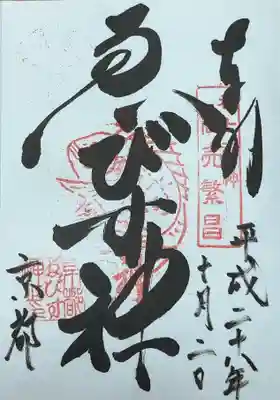 奉拝
商売繁昌
平成二十八年
十月二日
ゑびす神社
京都